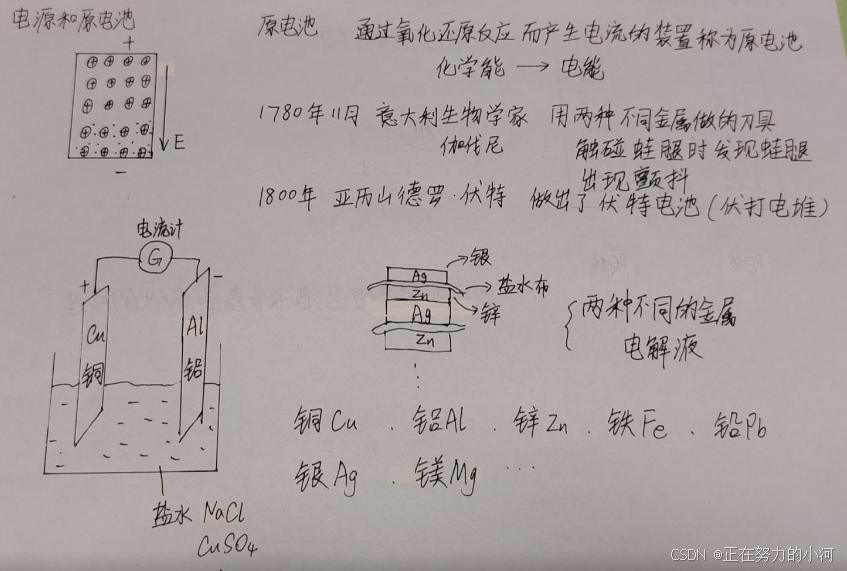 电源和原电池
+
E
-
原电池 通过氧化还原反应而产生电流的装置称为原电池
化学能 → 电能
1780年11月 意大利生物学家 用两种不同金属做的刀具
伽伐尼 触碰蛙腿时发现蛙腿
出现颤抖
1800年 亚历山德罗·伏特 做出了伏特电池(伏打电堆)
电流计
G
+
-
Cu
铜
Al
铝
盐水 NaCl
CuSO4
Ag
银
Zn
盐水布
Ag
锌
Zn
⋮
两种不同的金属
电解液
铜Cu 、铝Al 、锌Zn 、铁Fe 、铅Pb
银Ag 、镁Mg …
CSDN @正在努力的小河